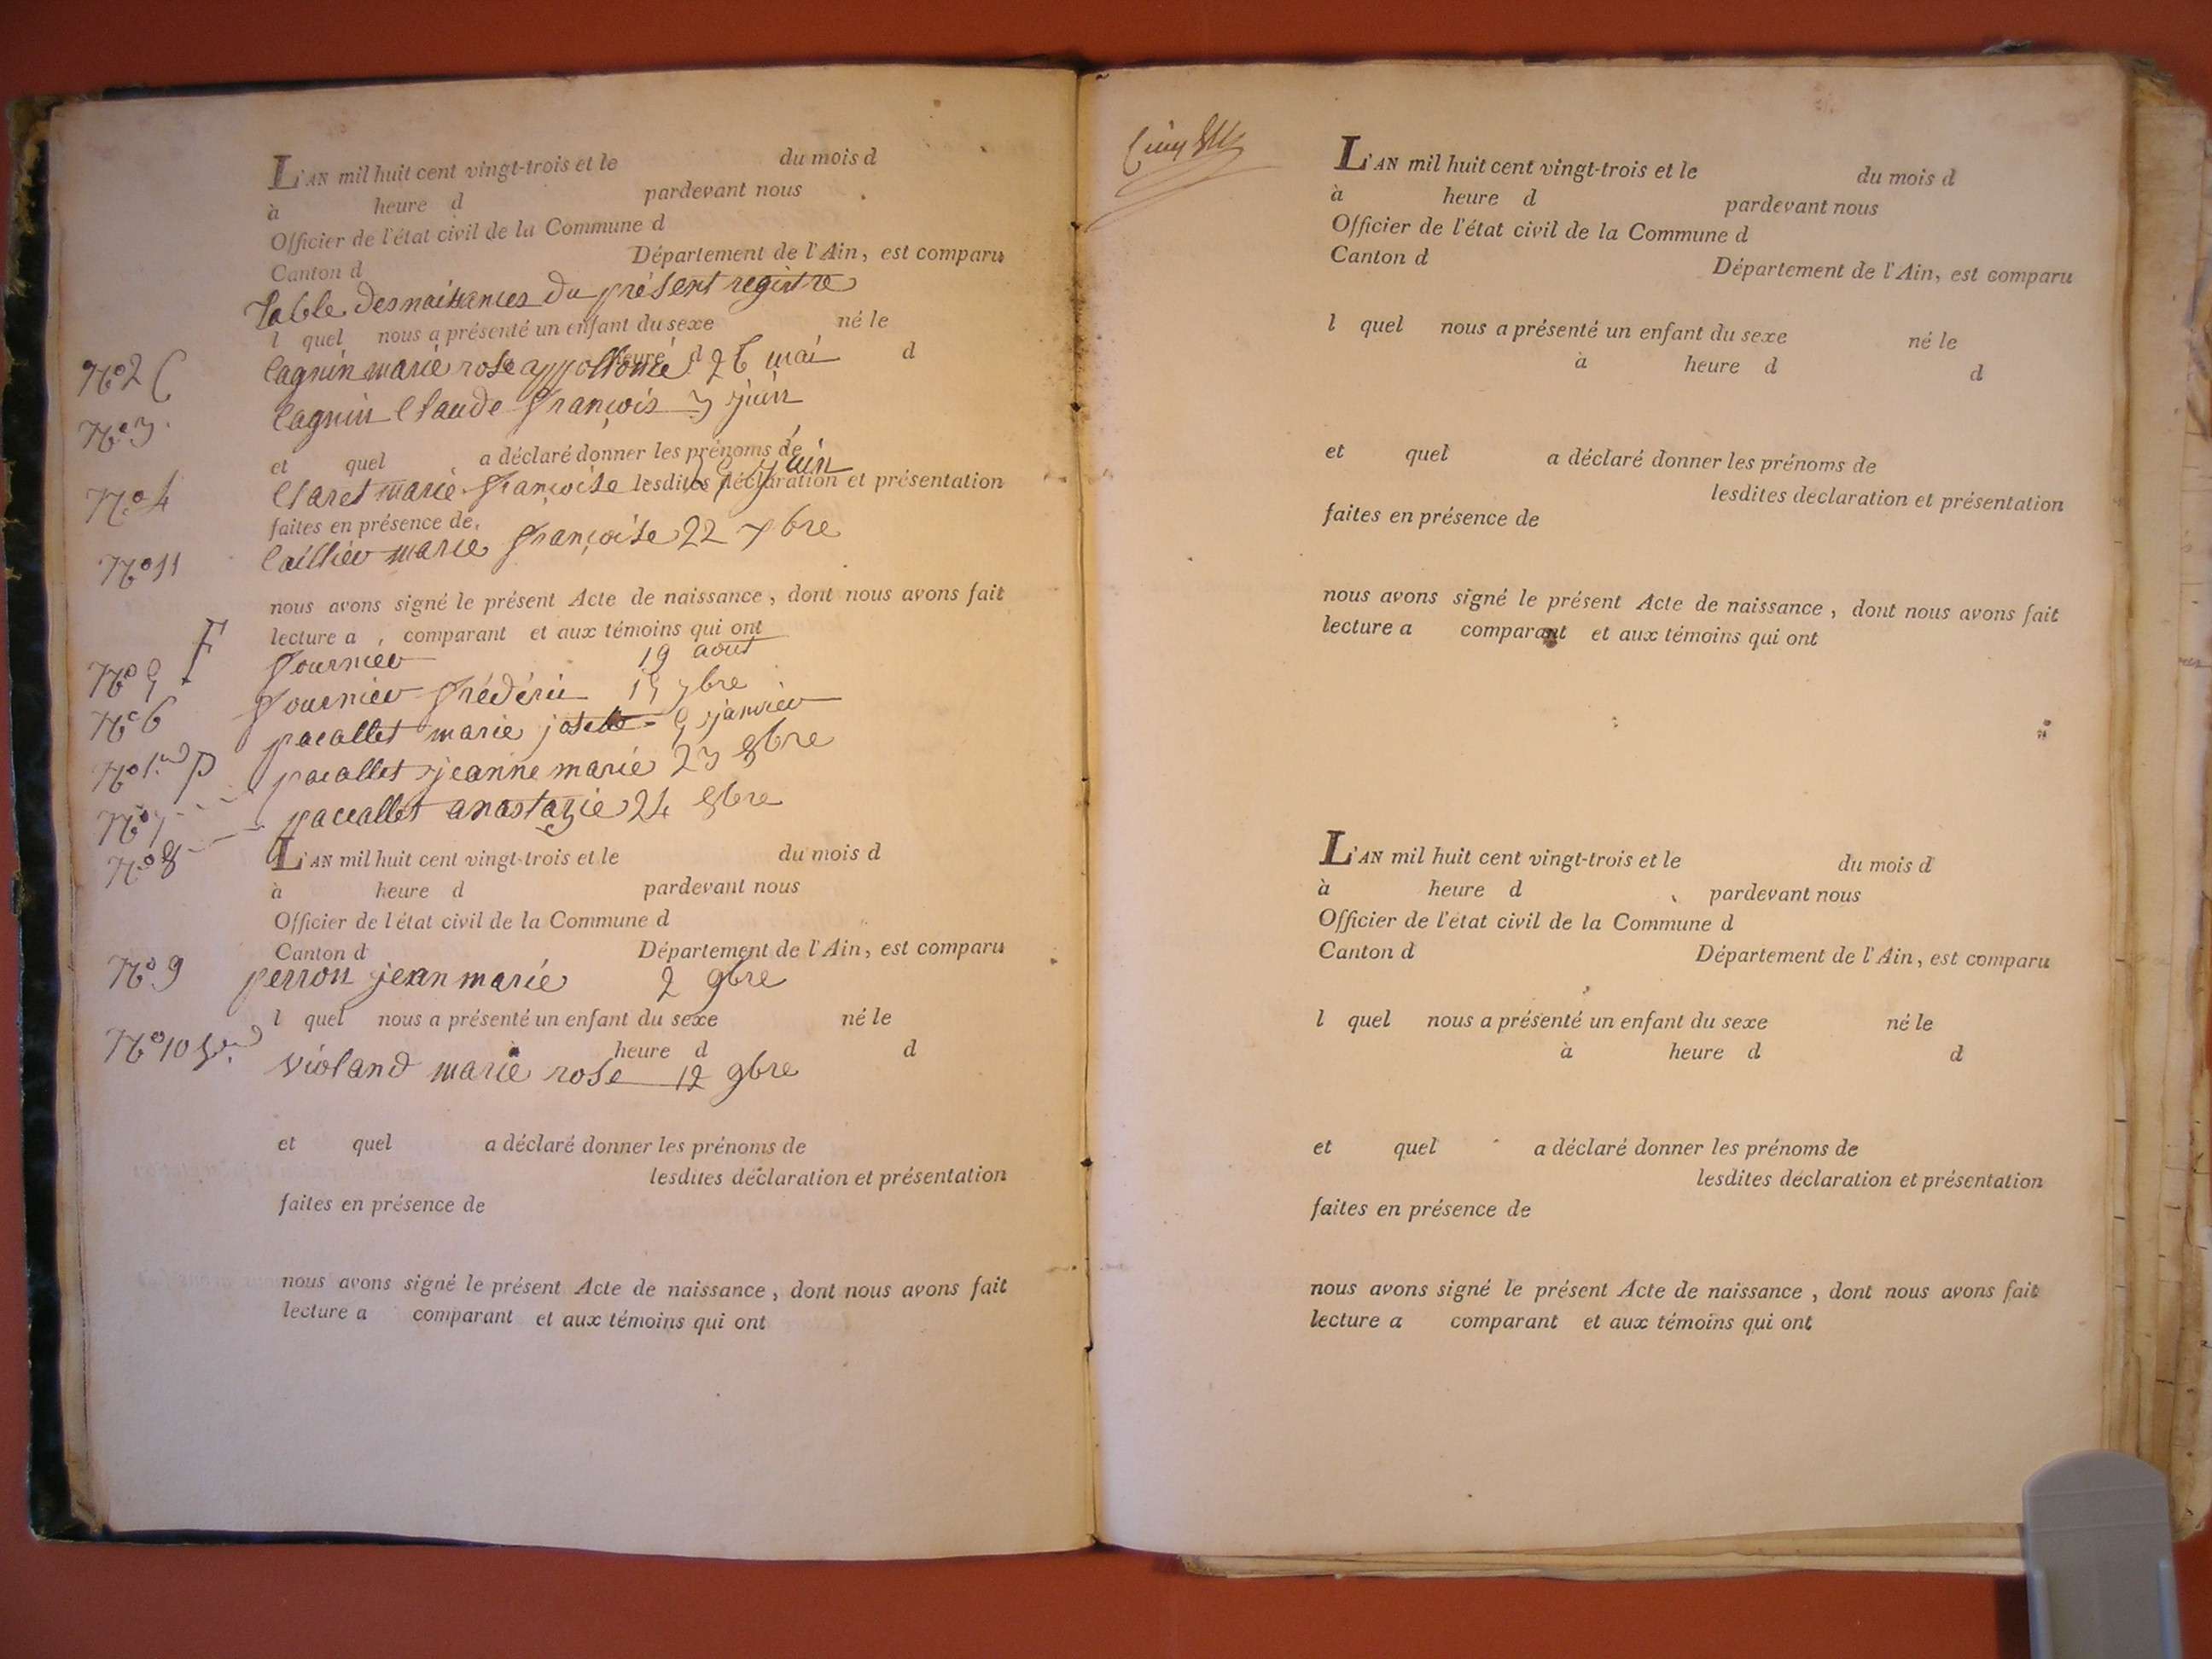 L'AN mil huit cent vingt-trois et le du mois d
à heure d pardevant nous
Officier de l'état civil de la Commune d
Canton d Département de l'Ain, est comparu
table des naissances du présent registre
l quel nous a présenté un enfant du sexe né le
heure d d
N° 2 C Cagnin marie rose appollonie 26 mai
N° 3 Cagnin Claude françois 3 juin
et quel a déclaré donner les prénoms de
N° 4 Claret marie françoise juin
lesdites déclaration et présentation
faites en présence de
N° 11 Caillier marie françoise 22 xbre
nous avons signé le présent Acte de naissance, dont nous avons fait
lecture a comparant et aux témoins qui ont
N° 5 F fournier 19 aout
N° 6 fournier frédéric 15 7bre
N° 1er P pacallet marie 5 janvier
N° 7 pacallet jeanne marie 23 8bre
N° 8 paccallet anastazie 24 8bre
L'AN mil huit cent vingt-trois et le du mois d
à heure d pardevant nous
Officier de l'état civil de la Commune d
Canton d Département de l'Ain, est comparu
N° 9 perron jean marie 2 9bre
l quel nous a présenté un enfant du sexe né le
heure d d
N° 10 violand marie rose 12 9bre
et quel a déclaré donner les prénoms de
lesdites déclaration et présentation
faites en présence de
nous avons signé le présent Acte de naissance, dont nous avons fait
lecture a comparant et aux témoins qui ont
L'AN mil huit cent vingt-trois et le du mois d
à heure d pardevant nous
Officier de l'état civil de la Commune d
Canton d Département de l'Ain, est comparu
l quel nous a présenté un enfant du sexe né le
à heure d d
et quel a déclaré donner les prénoms de
lesdites déclaration et présentation
faites en présence de
nous avons signé le présent Acte de naissance, dont nous avons fait
lecture a comparant et aux témoins qui ont
L'AN mil huit cent vingt-trois et le du mois d
à heure d pardevant nous
Officier de l'état civil de la Commune d
Canton d Département de l'Ain, est comparu
l quel nous a présenté un enfant du sexe né le
à heure d d
et quel a déclaré donner les prénoms de
lesdites déclaration et présentation
faites en présence de
nous avons signé le présent Acte de naissance, dont nous avons fait
lecture a comparant et aux témoins qui ont